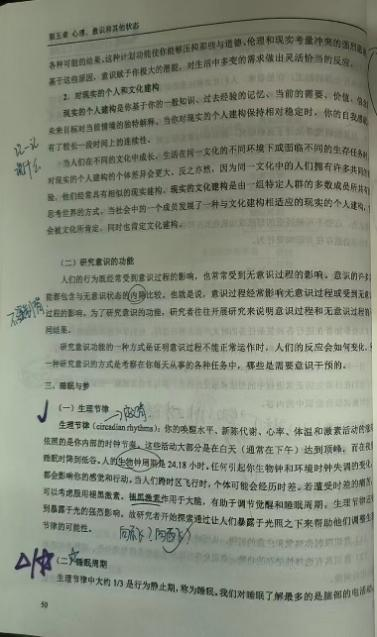 第五章 心理、意识和其他状态
各种可能的结果。这种计划功能使你能够压抑那些与道德、伦理和现实考量冲突的强烈
基于这些原因,意识赋予你极大的潜能,对生活中多变的需求做出灵活恰当的反应。
2. 对现实的个人和文化建构
现实的个人建构是你基于你的一般知识、过去经验的记忆、当前的需要、价值、信
未来目标对当前情境的独特解释。当你对现实的个人建构保持相对稳定时,你的自我感
有了较长一段时间上的连续性。
当人们在不同的文化中成长,生活在同一文化的不同环境下或面临不同的生存任务时
对现实的个人建构的个体差异会更大。反之亦然,因为同一文化中的人们拥有许多共同
验,他们经常具有相似的现实建构。现实的文化建构是由一组特定人群的多数成员所共
思考世界的方式。当社会中的一个成员发展了一种与文化建构相适应的现实的个人建构,
会被文化所肯定,同时也肯定文化建构。
(二)研究意识的功能
人们的行为既经常受到意识过程的影响,也常常受到无意识过程的影响。意识的许多
能都包含与无意识状态的内隐比较。也就是说,意识过程经常影响无意识过程或受到无意
过程的影响。为了研究意识的功能,研究者往往开展研究来说明意识过程和无意识过程的
同结果。
研究意识功能的一种方式是证明意识过程不能正常运作时,人们的反应会如何变化。
一种研究意识的方式是考察在你每天从事的各种任务中,哪些是需要意识干预的。
三、睡眠与梦
(一)生理节律
生理节律(circadian rhythms):你的唤醒水平、新陈代谢、心率、体温和激素活动的涨
依照的是你内部的时钟节奏。这些活动大部分是在白天(通常在下午)达到顶峰,而在夜
睡眠时降到低谷。人的生物钟周期是 24.18 小时。任何引起你生物钟和环境时钟失调的变化,
都会影响你的感觉和行动。当人们跨时区飞行时,个体可能会经历时差。若遭受时差的痛
可以考虑服用褪黑激素。褪黑激素作用于大脑,有助于调节觉醒和睡眠周期。生理节律
到暴露于光的强烈影响。故研究者开始探索通过让人们暴露于光照之下来帮助他们调整生
节律的可能性。
(二)睡眠周期
生理节律中大约 1/3 是行为静止期,称为睡眠。我们对睡眠了解最多的是脑部的电活动
50